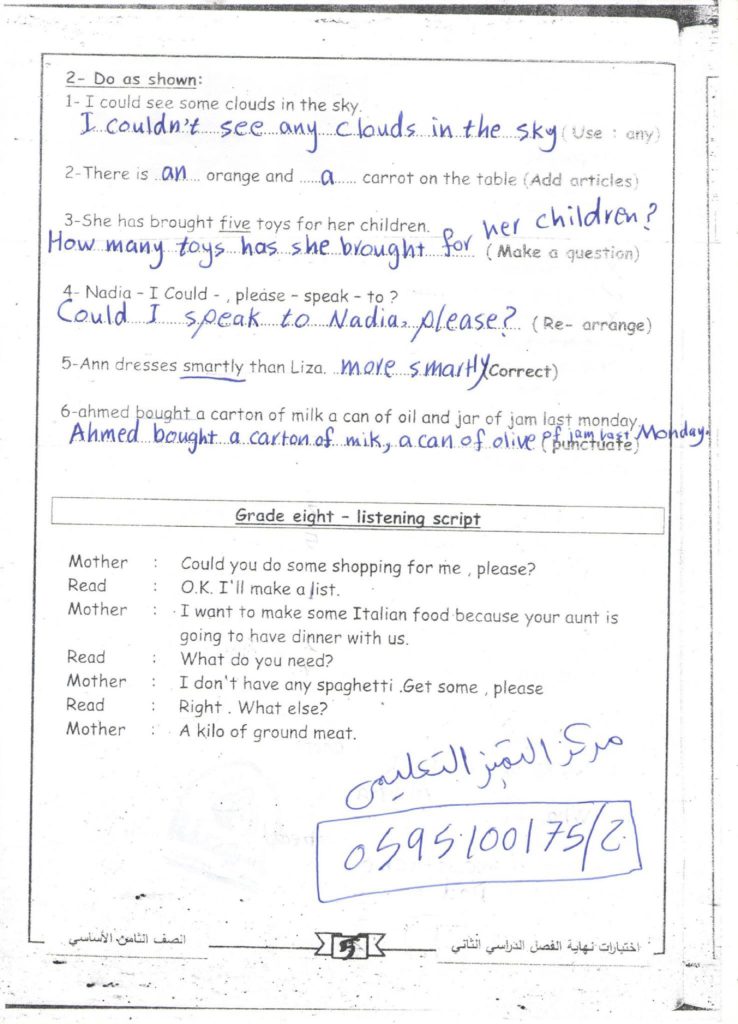 2- Do as shown:
1- I could see some clouds in the sky.
I couldn't see any clouds in the sky (Use : any)
2-There is ...an... orange and ...a...... carrot on the table (Add articles)
3-She has brought five toys for her children.
How many toys has she brought for her children? (Make a question)
4- Nadia - I Could - , please - speak - to ?
Could I speak to Nadia, please? (Re- arrange)
5-Ann dresses smartly than Liza. more smartly (Correct)
6-ahmed bought a carton of milk a can of oil and jar of jam last monday
Ahmed bought a carton of mik, a can of olive of jam last Monday. (punctuate)
Grade eight - listening script
Mother : Could you do some shopping for me , please?
Read : O.K. I'll make a list.
Mother : I want to make some Italian food because your aunt is
going to have dinner with us.
Read : What do you need?
Mother : I don't have any spaghetti .Get some , please
Read : Right . What else?
Mother : A kilo of ground meat.
مركز التميز التعليمي
0595100175/2
اختبارات نهاية الفصل الدراسي الثاني 5 الصف الثامن الأساسي